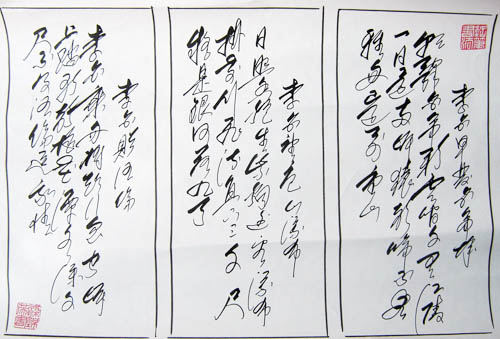 李白早发白帝城
朝辞白帝彩云间千里江陵
一日还两岸猿声啼不住
轻舟已过万重山
李白望庐山瀑布
日照香炉生紫烟遥看瀑布
挂前川飞流直下三千尺
疑是银河落九天
李白赠汪伦
李白乘舟将欲行忽闻岸
上踏歌声桃花潭水深千
尺不及汪伦送我情